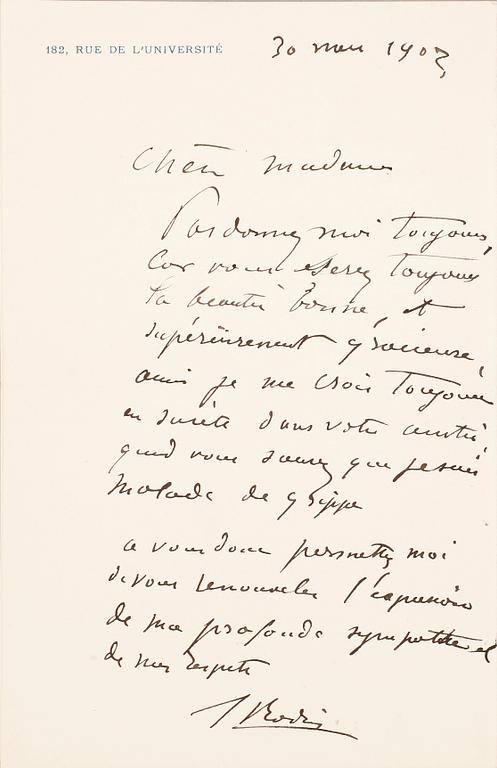 182, RUE DE L'UNIVERSITÉ
30 mars 1903
Chère Madame
Pardonnez moi toujours,
Car vous serez toujours
la beauté bonne, et
supérieurement gracieuse,
ainsi je me crois toujours
en sureté dans votre amitié,
quand vous saurez que je suis
malade de grippe
a vous donc permettez moi
de vous renouveler l'expression
de ma profonde sympathie et
de mes respects
A Rodin